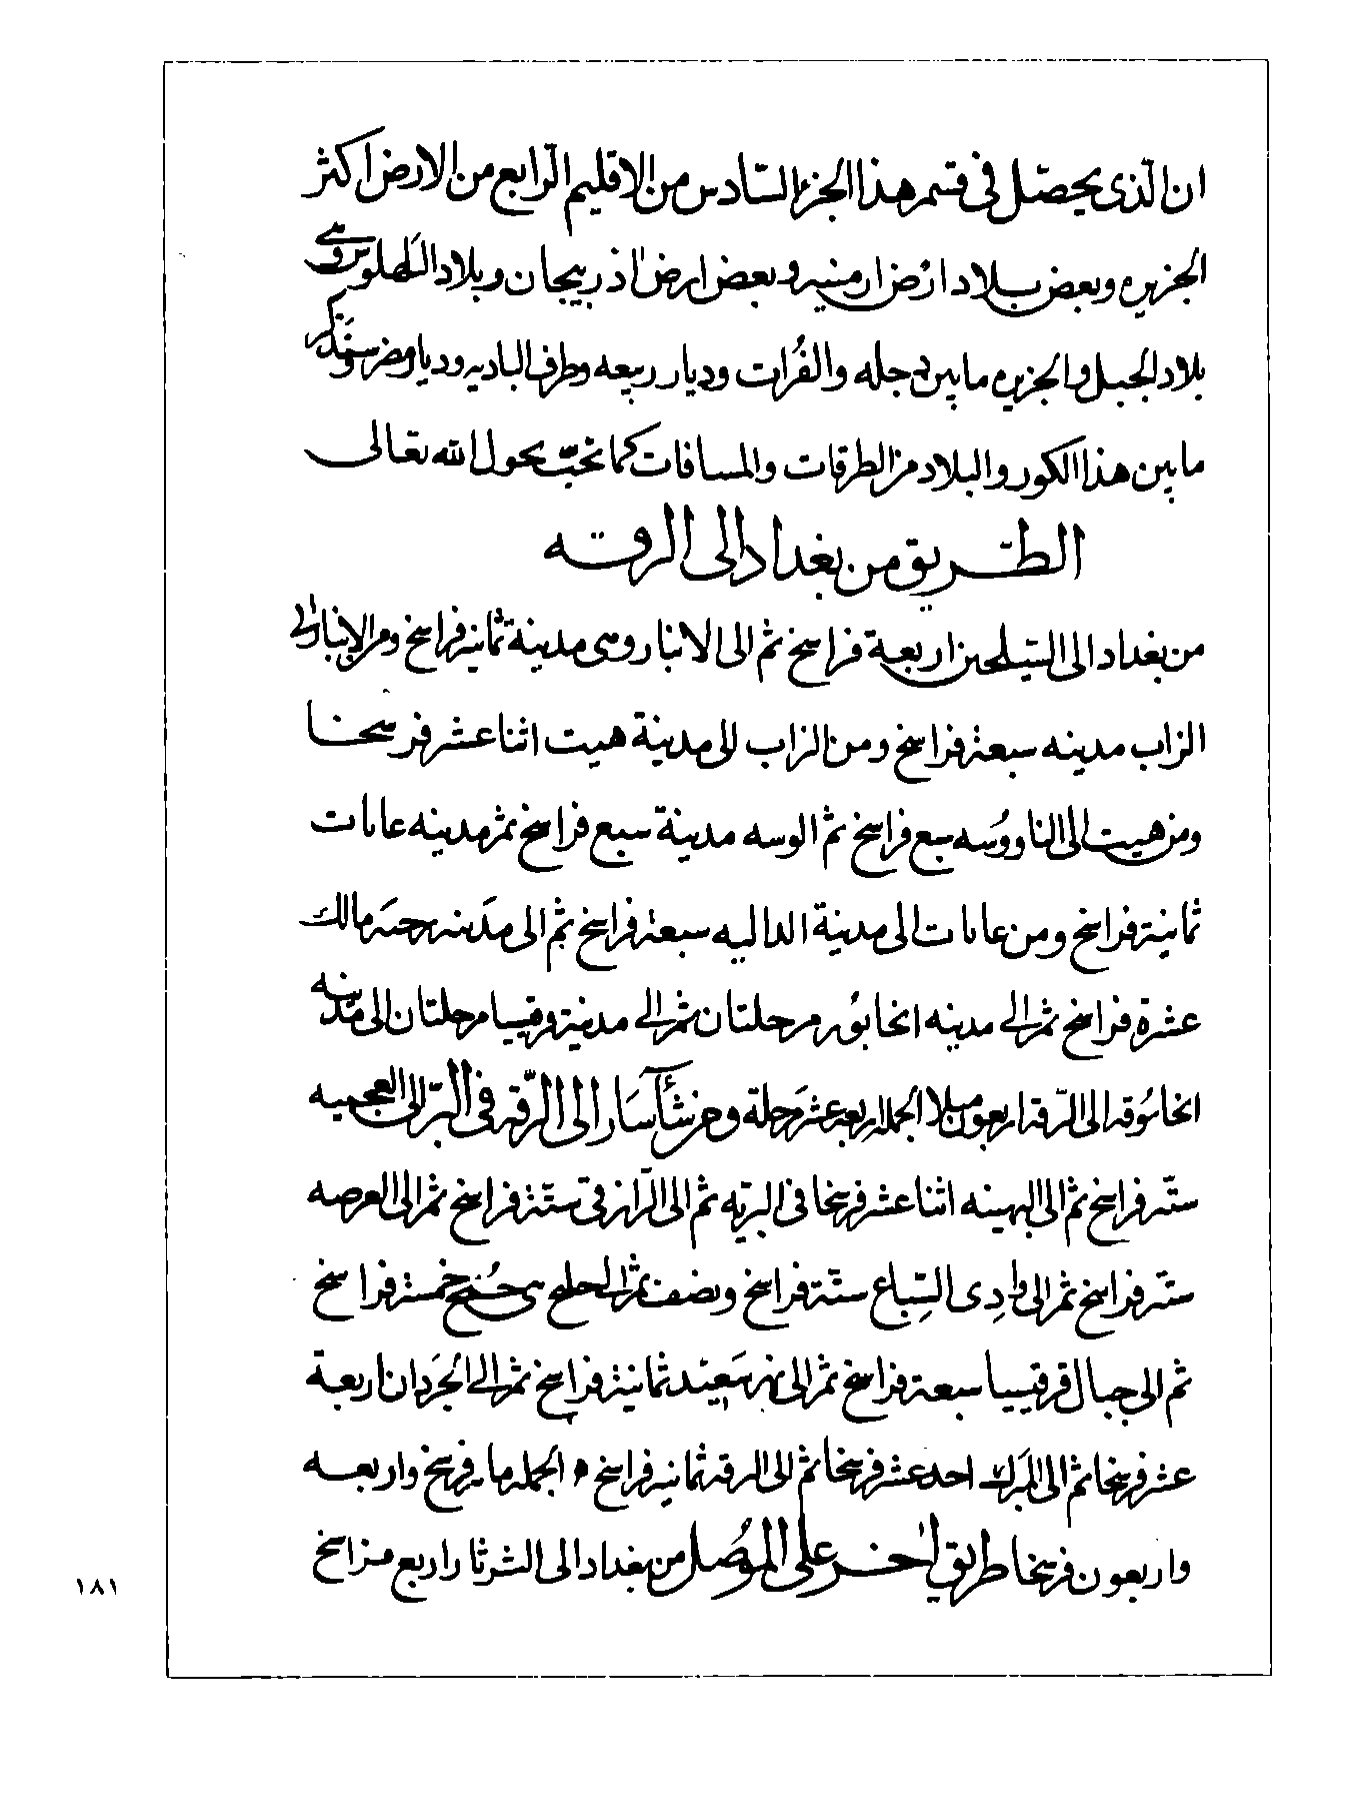 ان الّذى يحصّل فى قسم هذا الجزء السّادس من الاقليم الرّابع من الارض اكثر
الجزيره وبعض بلاد ارض ارمنيه وبعض ارض اذربيجان وبلاد البهلوس وهى
بلاد الجبل والجزيره ما بين دجله والفُرات وديار ربيعه وطرف الباديه وديار مضر وسنذكر
ما بين هذا الكور والبلاد من الطرقات والمسافات كما نحبّ بحول الله تعالى
الطّريق من بغداد الى الرقه
من بغداد الى السّيلحين اربعة فراسخ ثم الى الانبار وهى مدينة ثمانية فراسخ ومن الانبار الى
الزاب مدينه سبعة فراسخ ومن الزاب الى مدينة هيت اثنا عشر فرسخا
ومن هيت الى الناووسه سبع فراسخ ثم الوسه مدينة سبع فراسخ ثم مدينه عانات
ثمانية فراسخ ومن عانات الى مدينة الداليه سبعة فراسخ ثم الى مدينه رحبه مالك
عشرة فراسخ ثم الى مدينه الخابور مرحلتان ثم الى مدينة قرقيسيا مرحلتان الى مدينه
الخانوقه الى الرّقه اربعون ميلا الجمله اربعة عشر مرحلة ومن شآ سار الى الرّقه فى البرّ الى العجميه
ستّه فراسخ ثم الى البهينه اثنا عشر فرسخا فى البريّه ثم الى الرازفى ستّة فراسخ ثم الى العرصه
ستّه فراسخ ثم الى وادى السّباع ستّة فراسخ ونصف ثم الى خليج بنى جُمَيح خمسة فراسخ
ثم الى جبال قرقيسيا سبعة فراسخ ثم الى نهر سَعِيد ثمانية فراسخ ثم الى الجَردان اربعة
عشر فرسخا ثم الى المبرك احد عشر فرسخا ثم الى الرقه ثمانيه فراسخ ه الجمله مايه فرسخ واربعه
واربعون فرسخا طريق اخر على الموصل من بغداد الى الثرثار اربع فراسخ
١٨١